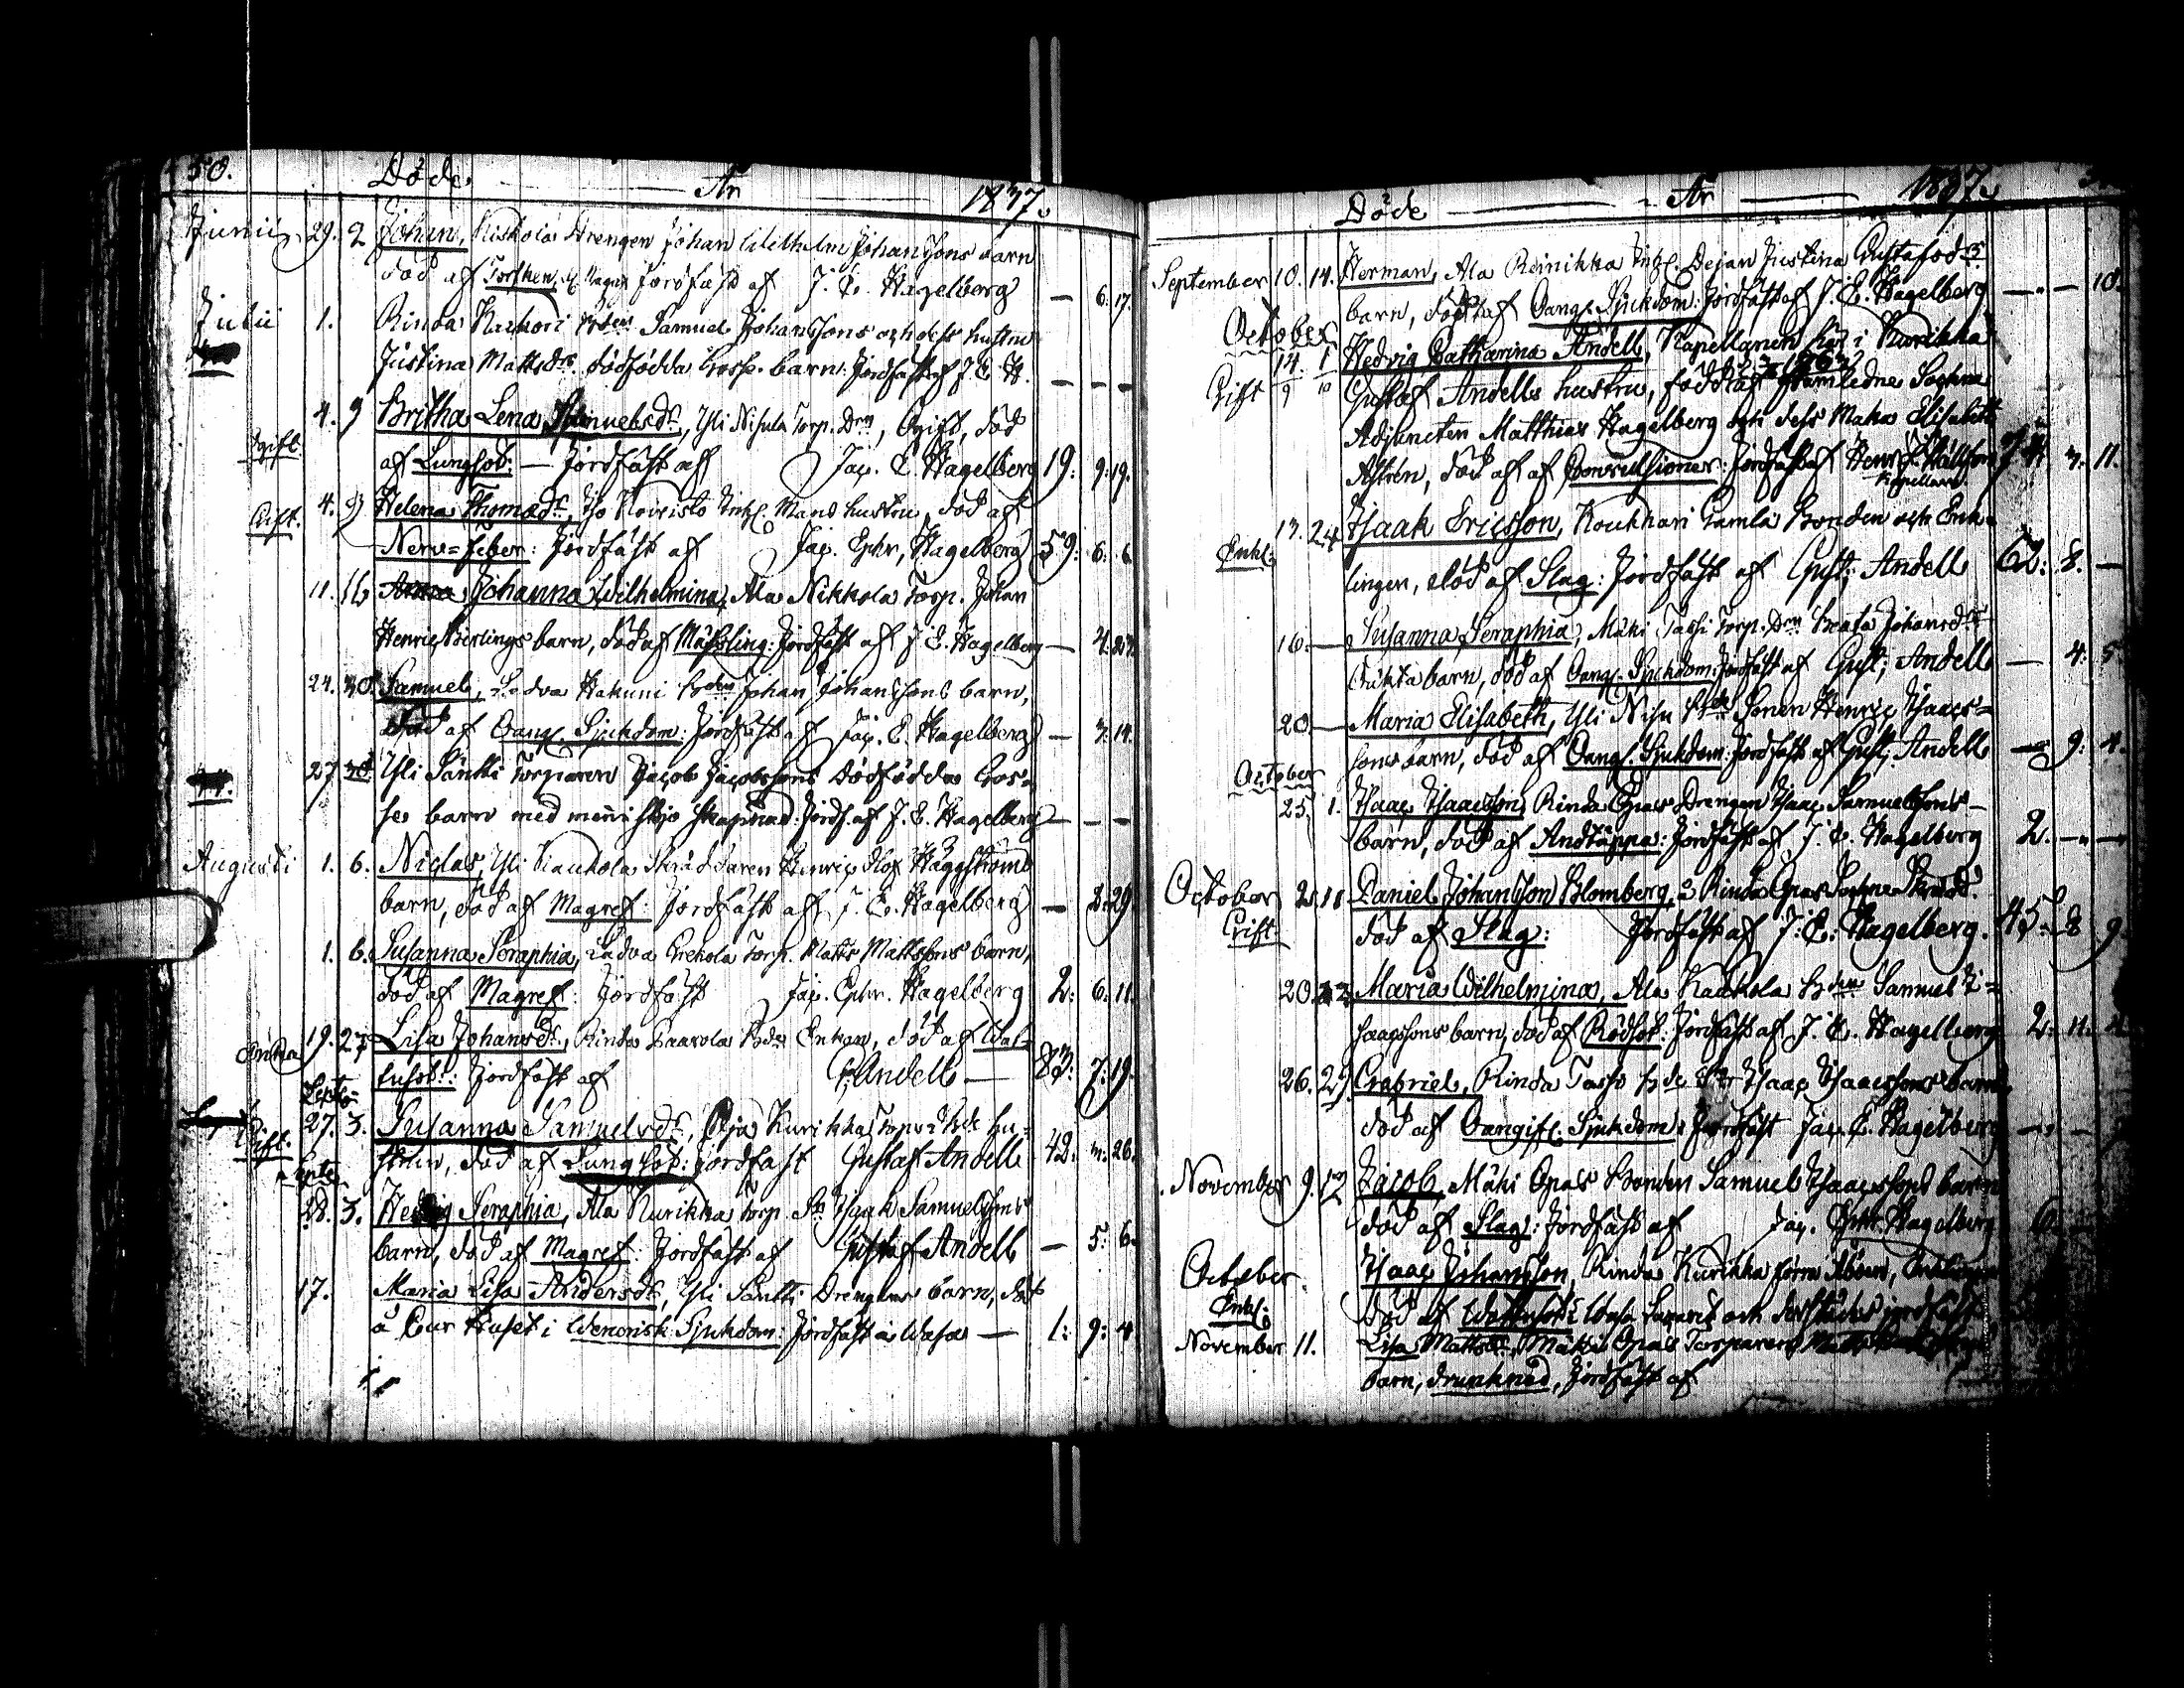 50. Döde År 1837.
Junii 29. 2 Johan, Niskola Drengen Johan Wilhelm Johanssons barn
död af Torsken, Jordfäst af J. E. Hagelberg — 6. 17.
Julii 1. Rinda Samuel Johanssons och dess hustru
Justina Mattsdr dödfödda Gosse barn: Jordfäst af J. E. H. — — —
4. 9 Britha Lena Samuelsdr, Yli Nisula Torp. Drn, Ogift, död
Ogift af Lungsot: — Jordfäst af Jac. E. Hagelberg 19: 9: 19.
4. 9 Helena Thomædr, Koivisto Inh. Mans hustru, död af
Gift. Nerv=feber: Jordfäst af Jac. Ephr. Hagelberg 59: 6: 6
11. 16 Johanna Wilhelmina, Ala Nikkola Torp. Johan
Henric barn, död af Mässling: Jordfäst af J. E. Hagelberg — 4:
24. 30. Samuel, Ladva Hakuni Bden Johan Johanssons barn,
död af Oang. Sjukdom: Jordfäst af Jac. E. Hagelberg — 3: 14.
27. 30. Yli Säntti Torparen Jacob Jacobssons Dödfödda Gos=
se barn med skapnad: Jordf. af J. E. Hagelberg — — —
Augusti 1. 6. Niclas, Yli Kaukola Skräddaren Henric Olof Häggströms
barn, död af Magref: Jordfäst af J. E. Hagelberg — 8: 29
1. 6. Susanna Seraphia, Ladva Torp. Matts Mattssons barn,
död af Magref: Jordfäst Jac. Ephr. Hagelberg 2: 6: 11.
19. 27 Lisa Johansdr, Rinda Paavola Bde Enkan, död af Wat=
Enka tusot: Jordfäst af G. Andell — 83: 7: 19.
Septe
27. 3. Susanna Samuelsdr, Kurikka hu=
Gift. strun, död af Lungsot: jordfäst Gustaf Andell 42: 26.
Septe
28. 3. Hedvig Seraphia, Ala Kurikka Torp. Isaak Samuelssons
barn, död af Magref: Jordfäst af Gustaf Andell — 5: 6.
17. Maria Lisa Andersdr, Yli Säntti Drengens barn, död
å Cur Huset i Wenerisk Sjukdom: Jordfäst i Wasa — 1: 9: 4
Döde År 1837.
September 10. 14. Herman, Ala Reinikka Inh. Dejan Justina Gustafsdrs
barn, död af Oang. Sjukdom: Jordfäst af J. E. Hagelberg — — 10.
October
14. 1 Hedvig Catharina Andell, Kapellanen här i Kurikka
Gift Gustaf Andells hustru, född af framledne Sockne
Adjuncten Matthias Hagelberg och dess Maka Elisabeth
Astrén, död af af Convulsioner: Jordfäst af 3: 11.
Kapellan.
13. 24 Isaak Ericsson, Koukkari Gamla Bonden och Enk=
Enkl. lingen, död af Slag: Jordfäst af Gust: Andell 62: 8. —
16. — Susanna Seraphia, Mäki Passi Torp. Drn Beata Johansdrs
Oäkta barn, död af Oang. Sjukdom: Jordfäst af Gust: Andell — 4: 5.
20. — Maria Elisabeth, Yli Nisu Sonen Henric Isaacs=
sons barn, död af Oang. Sjukdom: Jordfäst af Gust: Andell — 9: 4.
October
25. 1. Isaac Isaacsson, Rinda Opas Drengen Isaac Samuelssons
barn, död af Andtäppa: Jordfäst af J. E. Hagelberg 2. — —
October 2. 11 Daniel Johansson Blomberg, Rinda Opas Sockne
Gift. död af Slag: Jordfäst af J: E: Hagelberg. 45: 8 9
20. 22. Maria Wilhelmina, Ala Kaukola Bden Samuel I=
saacssons barn, död af Rödsot: Jordfäst af J. E. Hagelberg 2: 11:
26. 29. Gabriel, Rinda Passi Isaac Isaacssons barn
död af Oangif. Sjukdom: Jordfäst Jac. E. Hagelberg
November 9. 12 Jacob, Mäki Opas Bonden Samuel Isaacssons barn
död af Slag: Jordfäst af Jac. Ephr. Hagelberg 6.
October Isaac Johansson, Rinda Kurikka förra Åboen,
Enkl. död af Wattusot i Wasa Lazarett och derstädes jordfäst
November 11. Lisa Mattsdr, Mäki Opas Torparen
barn, drunknad, Jordfäst af